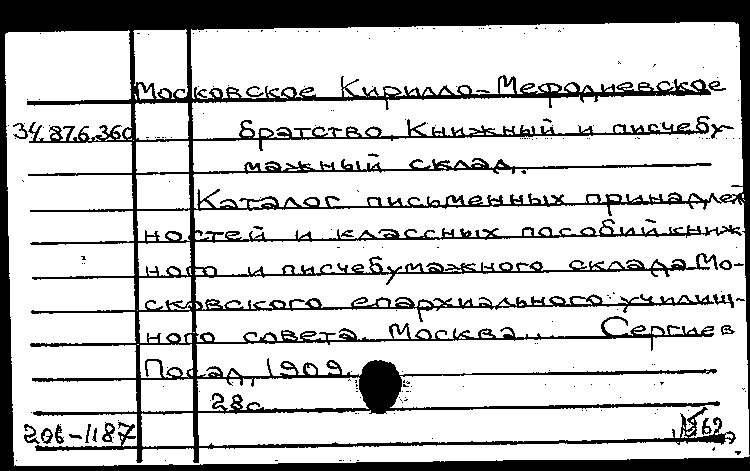 Московское Кирилло-Мефодиевское
34.87.6.360 братство. Книжный и писчебу-
мажный склад.
Каталог письменных принадлеж
ностей и классных пособий книж-
ного и писчебумажного склада Мо-
сковского епархиального училищ-
ного совета. Москва.. Сергиев
Посад, 1909.
28с.
206-1187